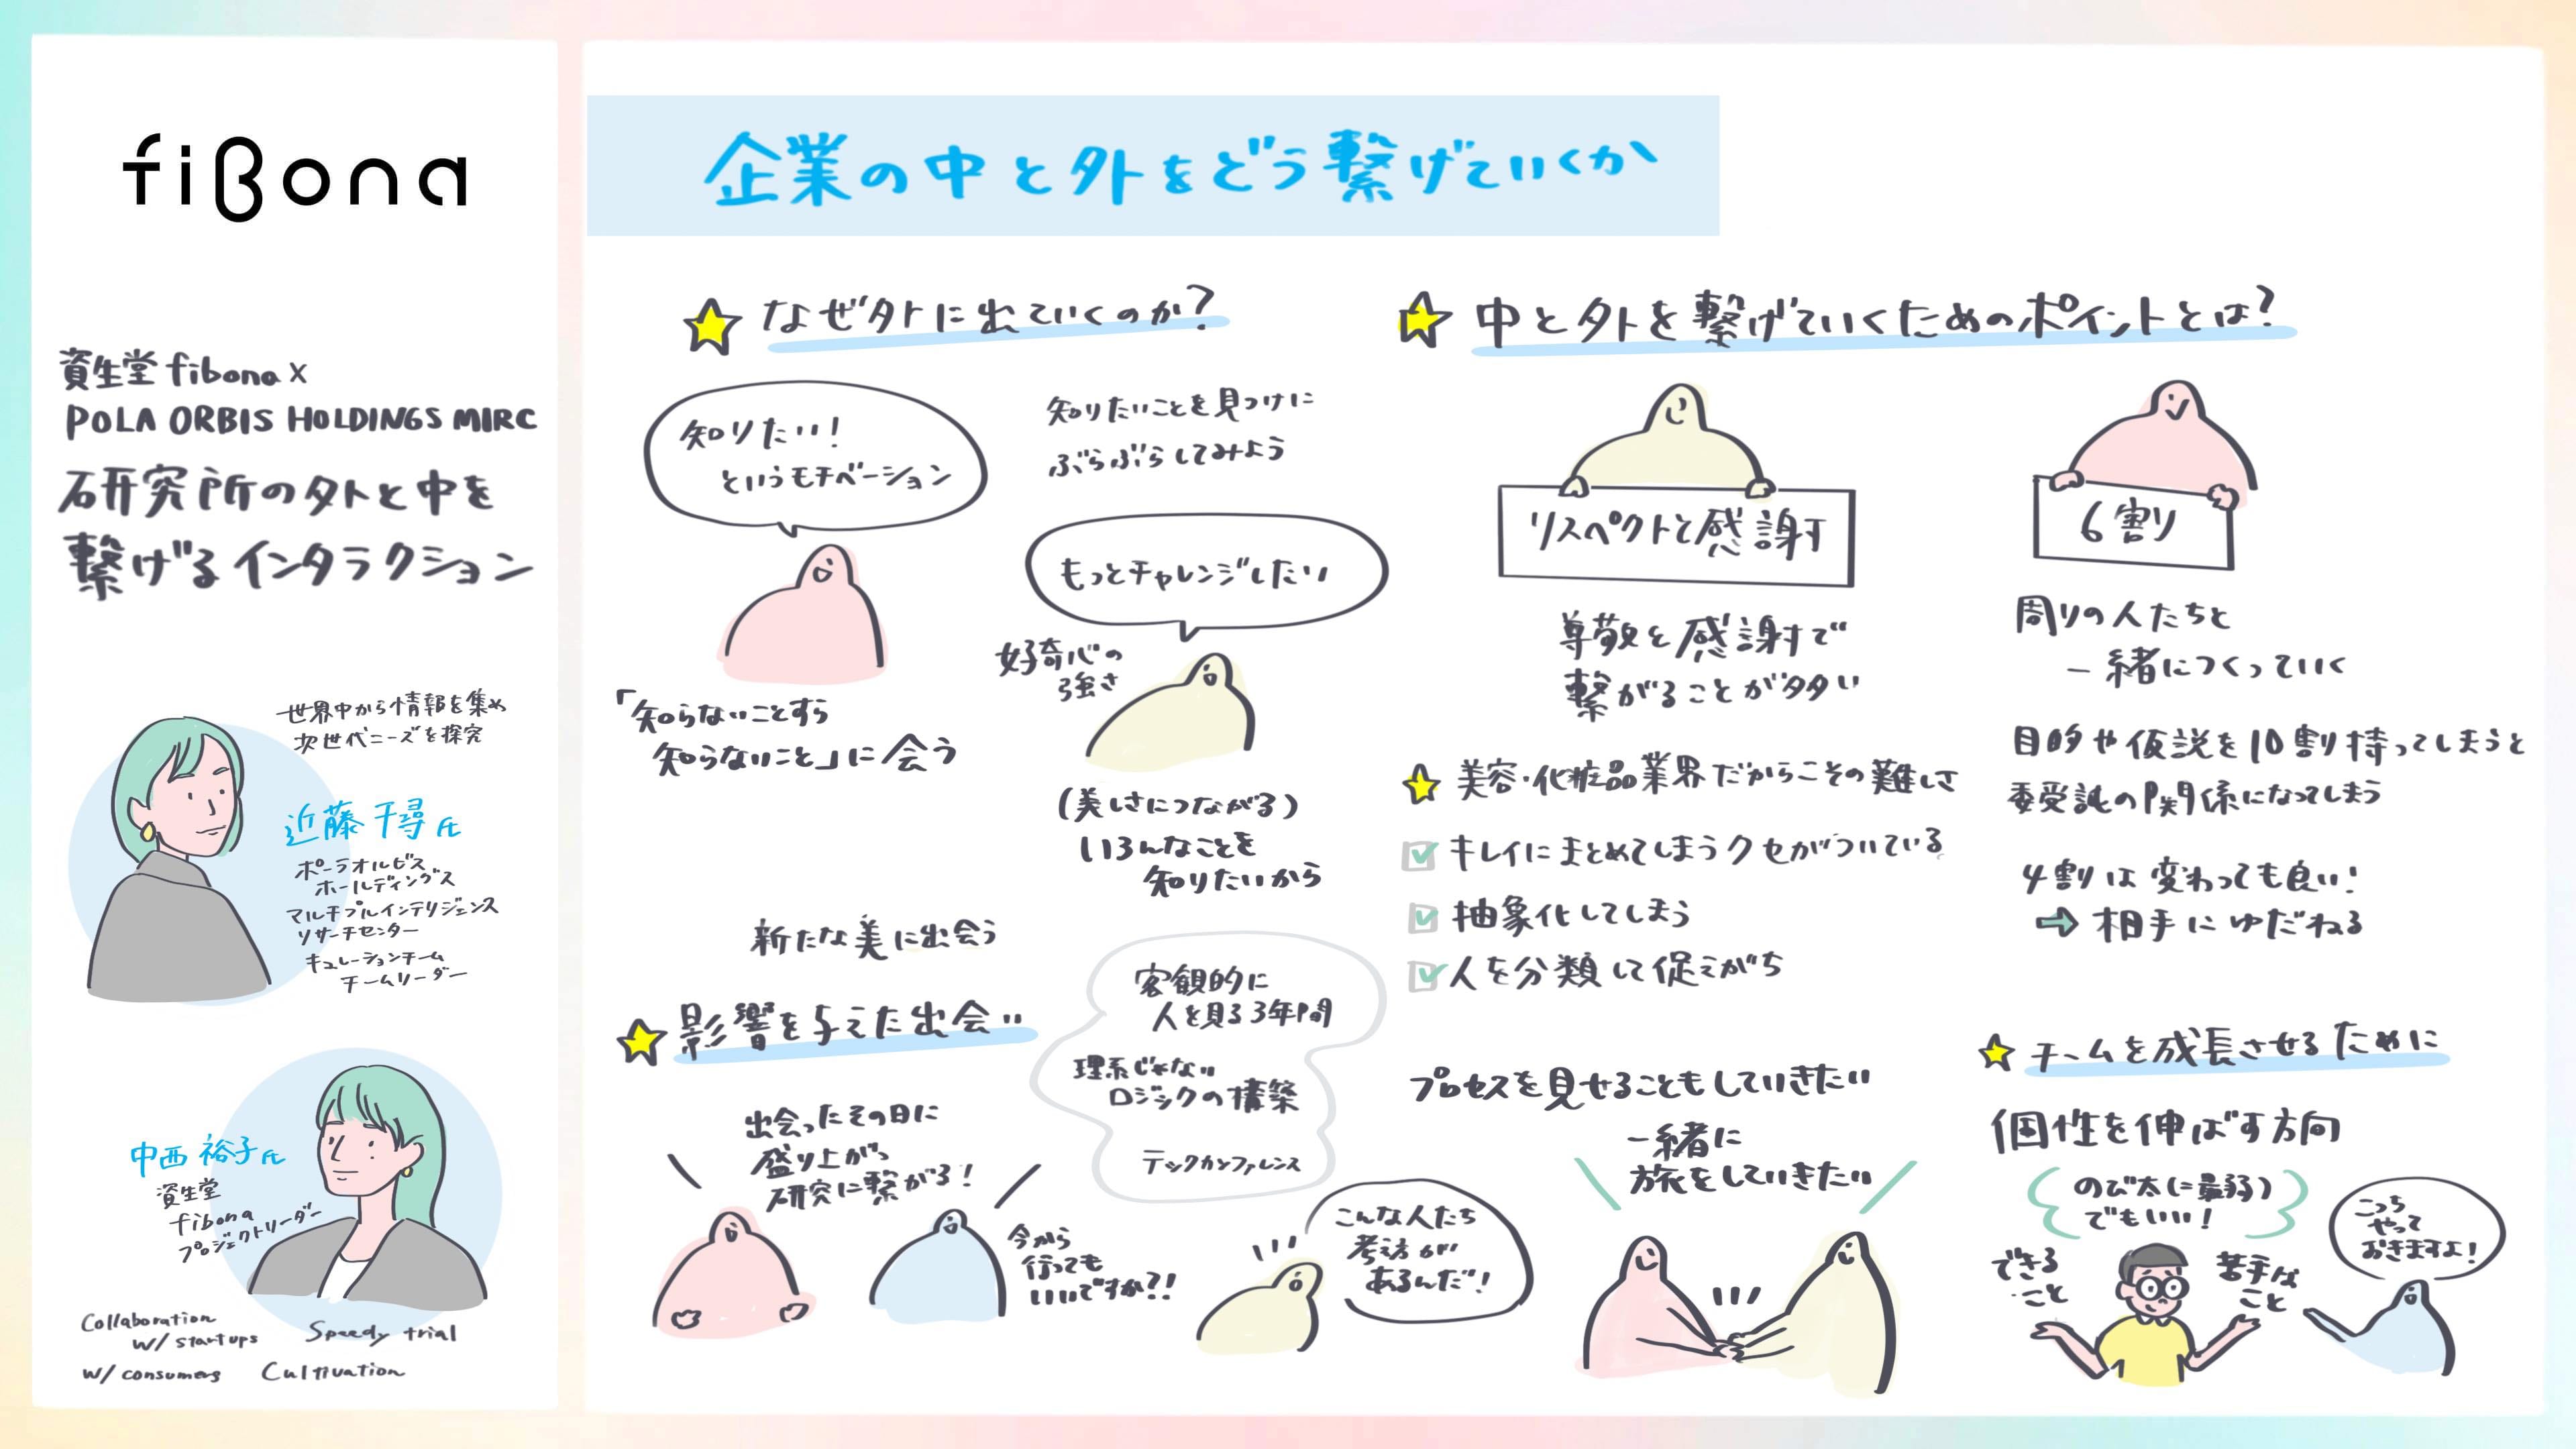 fiBona
資生堂 fibona x
POLA ORBIS HOLDINGS MIRC
研究所の外と中を
繋げるインタラクション
世界中から情報を集め
次世代ニーズを探究
近藤 千尋 氏
ポーラオルビス
ホールディングス
マルチプルインテリジェンス
リサーチセンター
キュレーションチーム
チームリーダー
中西 裕子 氏
資生堂
fibona
プロジェクトリーダー
Collaboration
w/ startups
Speedy trial
w/ consumers
Cultivation
企業の中と外をどう繋げていくか
なぜ外に出ていくのか?
知りたい!
というモチベーション
知りたいことを見つけに
ぶらぶらしてみよう
もっとチャレンジしたい
好奇心の
強さ
「知らないことすら
知らないこと」に会う
(美しさにつながる)
いろんなことを
知りたいから
新たな美に出会う
影響を与えた出会い
出会ったその日に
盛り上がり
研究に繋がる!
今から
行っても
いいですか?!
客観的に
人を見る3年間
理系じゃない
ロジックの構築
テックカンファレンス
こんな人たち
考え方が
あるんだ!
中と外を繋げていくためのポイントとは?
リスペクトと感謝
尊敬と感謝で
繋がることが多い
6割
周りの人たちと
一緒につくっていく
目的や仮説を10割持ってしまうと
委受託の関係になってしまう
4割は変わっても良い!
→ 相手にゆだねる
美容・化粧品業界だからこその難しさ
キレイにまとめてしまうクセがついている
抽象化してしまう
人を分類して促えがち
プロセスを見せることもしていきたい
一緒に
旅をしていきたい
チームを成長させるために
個性を伸ばす方向
のび太に最弱)
でもいい!
できる
こと
苦手な
こと
こっち
やって
おきますよ!